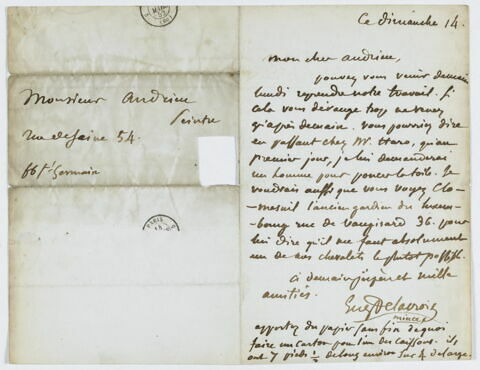 Monsieur Andrieu
Peintre
rue de Seine 54.
fbg St Germain
PARIS
Ce dimanche 14.
mon cher andrieu,
pouvez vous venir demain
lundi reprendre notre travail. Si
cela vous dérange trop ne venez
qu'après demain. Vous pourriez dire
en passant chez Mr. Haro, qu'au
premier jour, je lui demanderai
un homme pour poncer la toile. Je
voudrais aussi que vous voyez Clo-
mesnil l'ancien gardien du luxem-
bourg rue de vaugirard 36. pour
lui dire qu'il me faut absolument
un de nos chevalets le plutot possible.
à demain j'espère et mille
amitiés.
Eug Delacroix
apportez du papier sans fin de quoi
faire un carton pour l'un des caissons. ils
ont 7 pieds ½ de long environ sur 4 de large.